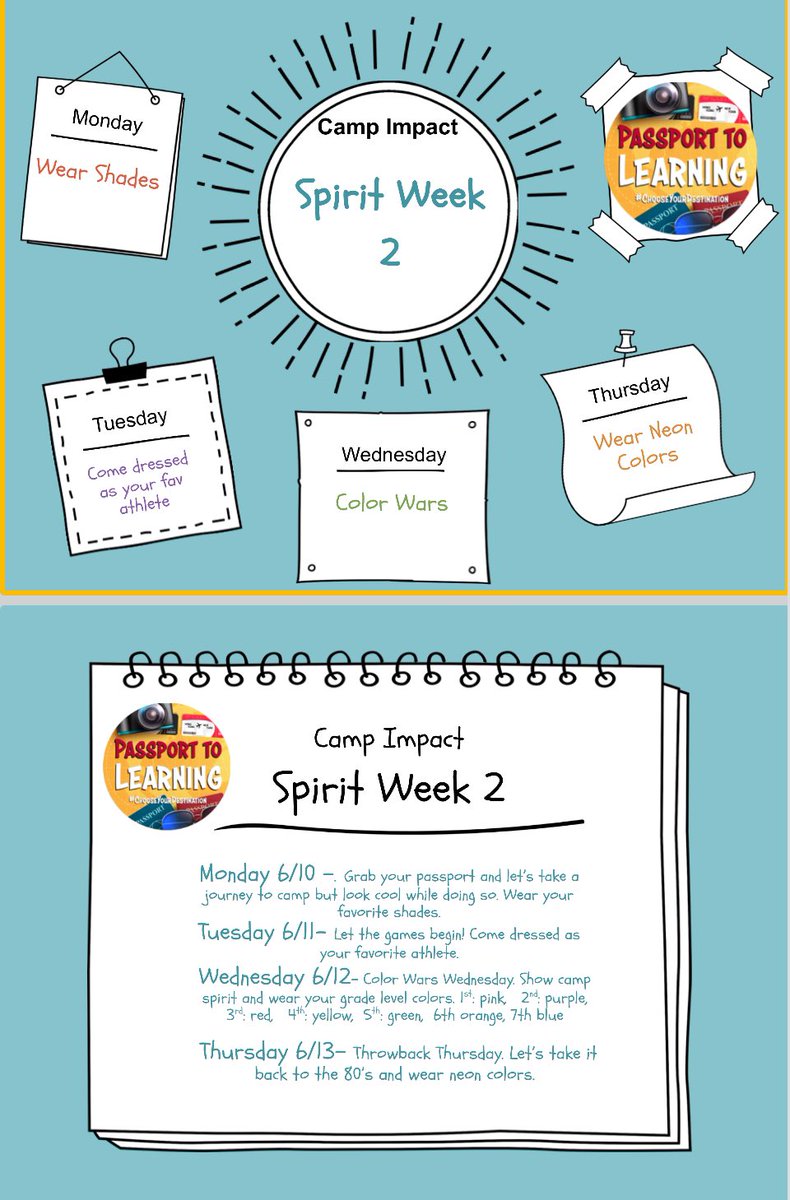 Monday
Wear Shades
Camp Impact
Spirit Week
2
PASSPORT TO
LEARNING
#CHOOSEYOURDESTINATION
PASSPORT
Tuesday
Come dressed
as your fav
athlete
Wednesday
Color Wars
Thursday
Wear Neon
Colors
PASSPORT TO
LEARNING
#CHOOSEYOURDESTINATION
PASSPORT
Camp Impact
Spirit Week 2
Monday 6/10 –. Grab your passport and let's take a
journey to camp but look cool while doing so. Wear your
favorite shades.
Tuesday 6/11– Let the games begin! Come dressed as
your favorite athlete.
Wednesday 6/12– Color Wars Wednesday. Show camp
spirit and wear your grade level colors. 1st: pink, 2nd: purple,
3rd: red, 4th: yellow, 5th: green, 6th orange, 7th blue
Thursday 6/13– Throwback Thursday. Let's take it
back to the 80's and wear neon colors.